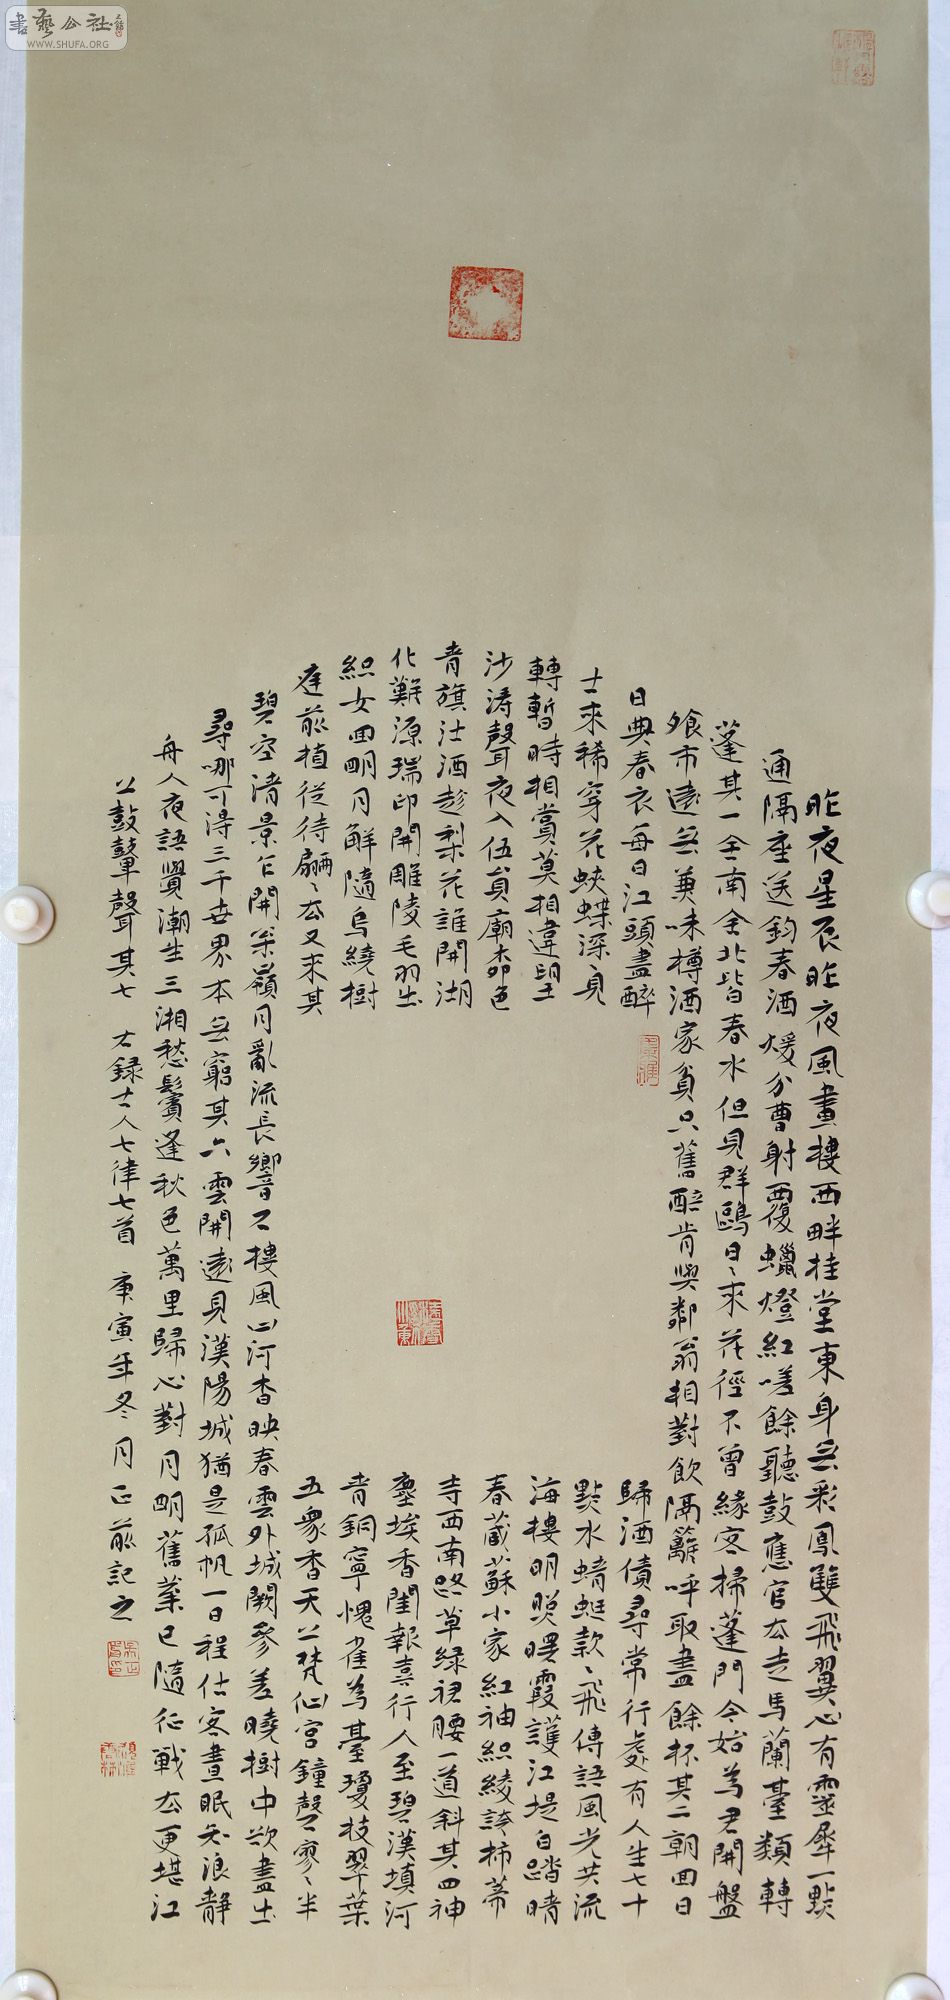 書藝公社
WWW.SHUFA.ORG
昨夜星辰昨夜風畫樓西畔桂堂東身無彩鳳雙飛翼心有靈犀一點
通隔座送鈎春酒煖分曹射覆蠟燈紅嗟餘聽鼓應官去走馬蘭臺類轉
蓬其一舍南舍北皆春水但見群鷗日、來花徑不曾緣客掃蓬門今始為君開盤
飧市遠無兼味樽酒家貧只舊醅肯與鄰翁相對飲隔籬呼取盡餘杯其二朝回日
日典春衣每日江頭盡醉歸酒債尋常行處有人生七十
古來稀穿花蛺蝶深見點水蜻蜓款、飛傳語風光共流
轉暫時相賞莫相違望海樓明照曙霞護江堤白踏晴
沙濤聲夜入伍員廟柳色春藏蘇小家紅袖織綾誇柿蒂
青旗沽酒趁梨花誰開湖寺西南路草綠裙腰一道斜其四神
化難源瑞印開雕陵毛羽出塵埃香閨報喜行人至碧漢填河
織女回明月解隨烏繞樹青銅寧愧雀為臺瓊枝翠葉
庭前植從待翩、去又來其五眾香天上梵仙宮鐘磬寥、半
碧空清景乍開翠嶺月亂流長響石樓風山河杳映春雲外城闕參差曉樹中欲盡出
尋哪可得三千世界本無窮其六雲開遠見漢陽城猶是孤帆一日程估客晝眠知浪靜
舟人夜語覺潮生三湘愁鬢逢秋色萬里歸心對月明舊業已隨征戰去更堪江
上鼓鼙聲其七 右錄古人七律七首 庚寅年冬月正前記之